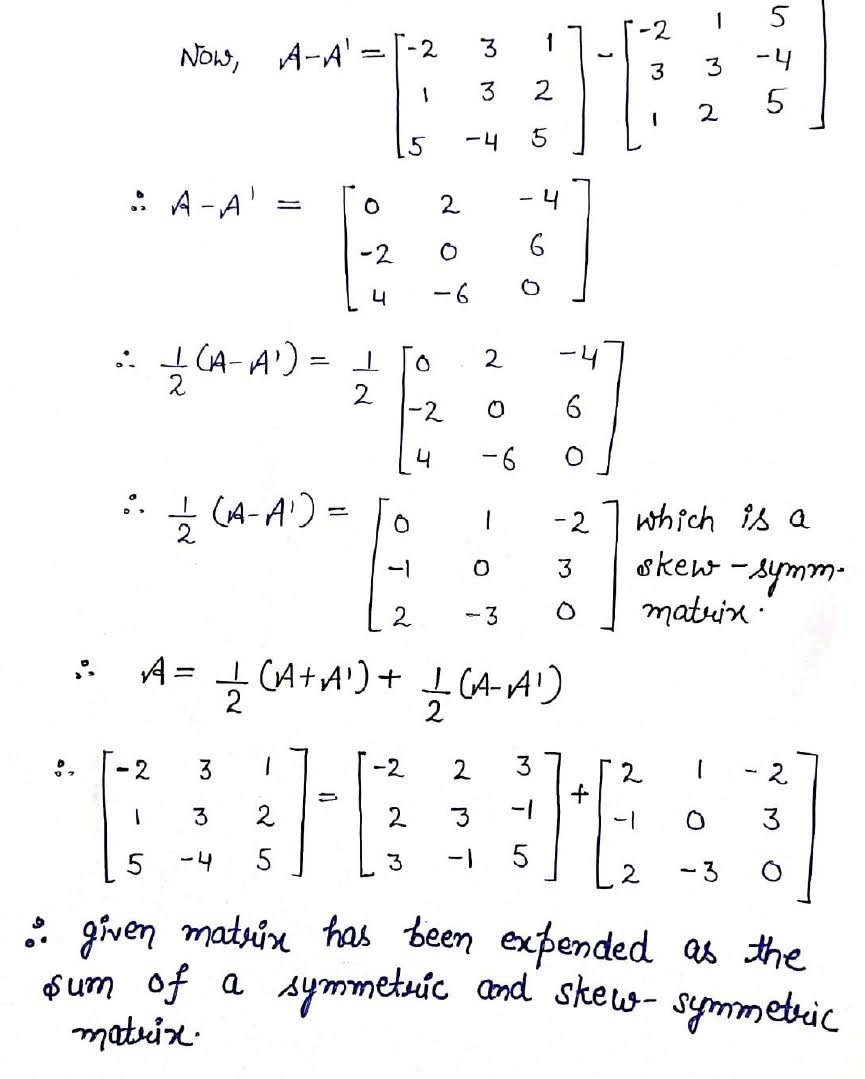 Now, A-A' = [-2 3 1] - [-2 1 5]
1 3 2 3 3 -4
5 -4 5 1 2 5
∴ A-A' = [0 2 -4]
-2 0 6
4 -6 0
∴ 1/2 (A-A') = 1/2 [0 2 -4]
-2 0 6
4 -6 0
∴ 1/2 (A-A') = [0 1 -2] which is a
-1 0 3 skew-symm.
2 -3 0 matrix.
∴ A = 1/2 (A+A') + 1/2 (A-A')
∴ [-2 3 1] = [-2 2 3] + [2 1 -2]
1 3 2 2 3 -1 -1 0 3
5 -4 5 3 -1 5 2 -3 0
∴ given matrix has been expended as the
sum of a symmetric and skew-symmetric
matrix.